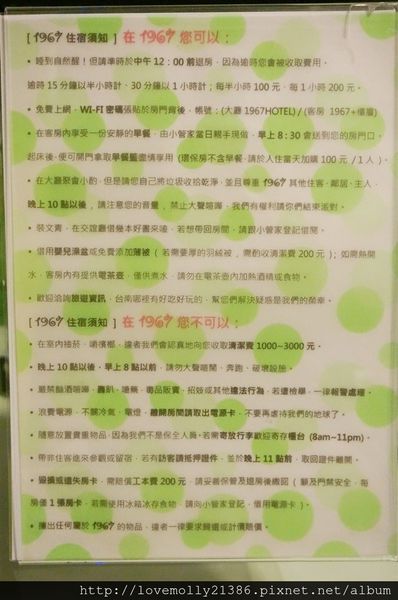 [ 1967 住宿須知 ] 在 1967 您可以：
• 睡到自然醒！但請準時於中午 12：00 前退房，因為逾時您會被收取費用。
逾時 15 分鐘以半小時計、30 分鐘以 1 小時計；每半小時 100 元，每 1 小時 200 元。
• 免費上網，WI-FI 密碼張貼於房門背後，帳號：(大廳 1967HOTEL) / (客房 1967+樓層)
• 在客房內享受一份安靜的早餐，由小管家當日親手現做，早上 8：30 會送到您的房門口。
起床後，便可開門拿取早餐籃盡情享用 (環保房不含早餐，請於入住當天加購 100 元 / 1 人)。
• 在大廳聚會小酌，但是請您自己將垃圾收拾乾淨，並且尊重 1967 其他住客、鄰居、主人，
晚上 10 點以後，請注意您的音量，禁止大聲喧嘩，我們有權利請你們結束派對。
• 裝文青，在交誼廳借幾本好書來嗑，若想帶回房間，請跟小管家登記借閱。
• 借用嬰兒澡盆或免費添加薄被 ( 若需要厚的羽絨被，需酌收清潔費 200 元 )；如需熱開
水，客房內有提供電茶壺，僅供煮水，請勿在電茶壺內加熱酒精或食物。
• 歡迎洽詢旅遊資訊，台南哪裡有好吃好玩的，幫您們解決疑惑是我們的榮幸。
[ 1967 住宿須知 ] 在 1967 您不可以：
• 在室內抽菸、嚼檳榔，違者我們會認真地向您收取清潔費 1000~3000 元。
• 晚上 10 點以後，早上 8 點以前，請勿大聲喧鬧、奔跑、破壞設施。
• 嚴禁酗酒喧嘩、轟趴、賭藥、毒品販賣、招妓或其他違法行為，若遭檢舉，一律報警處理。
• 浪費電源，不關冷氣、電燈，離開房間請取出電源卡，不要再虐待我們的地球了。
• 隨意放置貴重物品，因為我們不是保全人員。若需寄放行李歡迎寄存櫃台 (8am~11pm)。
• 帶非住客進來參觀或留宿，若有訪客請抵押證件，並於晚上 11 點前，取回證件離開。
• 毀損或遺失房卡，需賠償工本費 200 元，請妥善保管及退房後繳認 ( 顧及門禁安全，每
房僅 1 張房卡，若需使用冰箱冰存食物，請向小管家登記，借用電源卡 )。
• 攜出任何屬於 1967 的物品，違者一律要求歸還或計價賠償。
http://lovemolly21386.pixnet.net/album